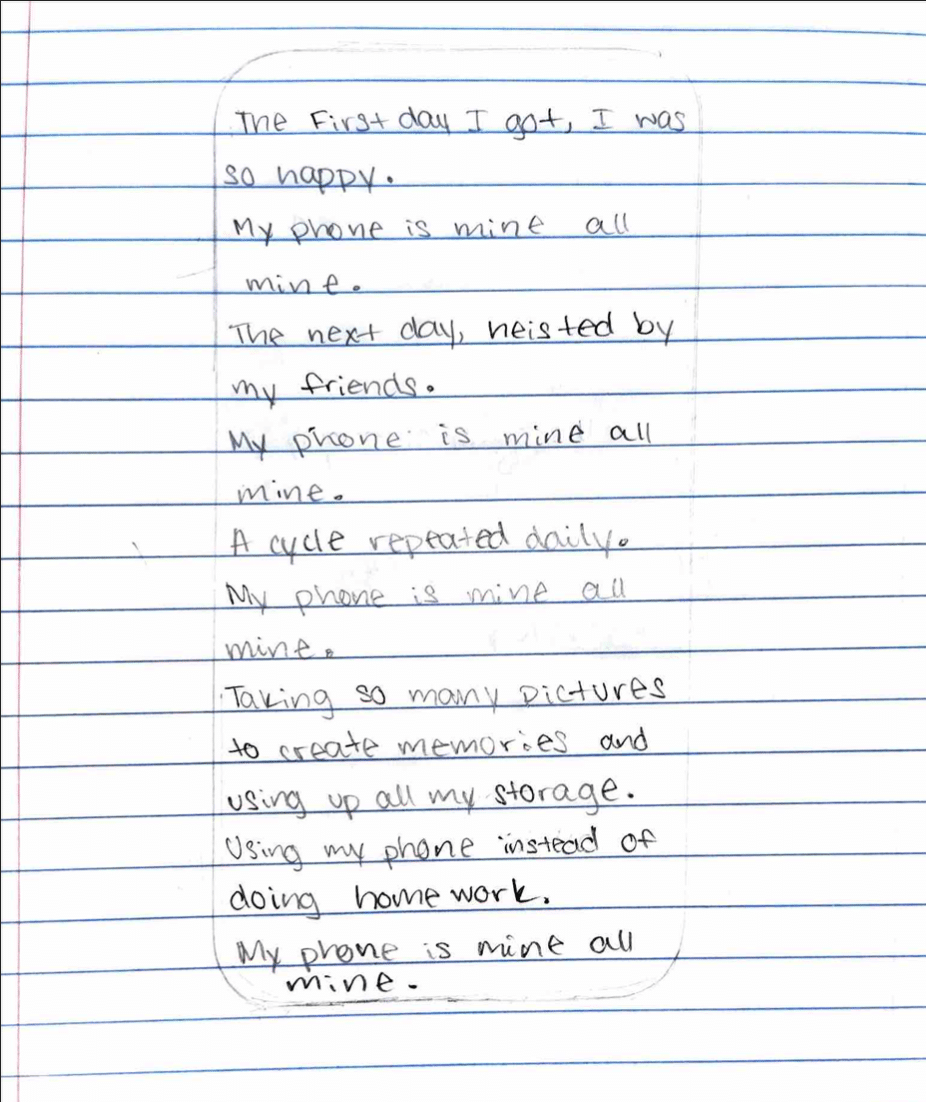 The First day I got, I was
so happy.
My phone is mine all
mine.
The next day, heisted by
my friends.
My phone is mine all
mine.
A cycle repeated daily.
My phone is mine all
mine.
Taking so many pictures
to create memories and
using up all my storage.
Using my phone instead of
doing homework.
My phone is mine all
mine.